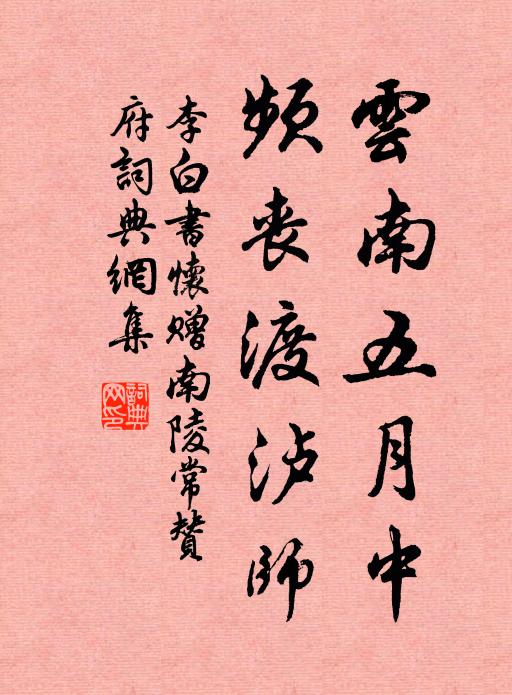 雲南五月中
頻喪渡泸師
李白書懷贈南陵常贊
府詞典網集
詞典网印